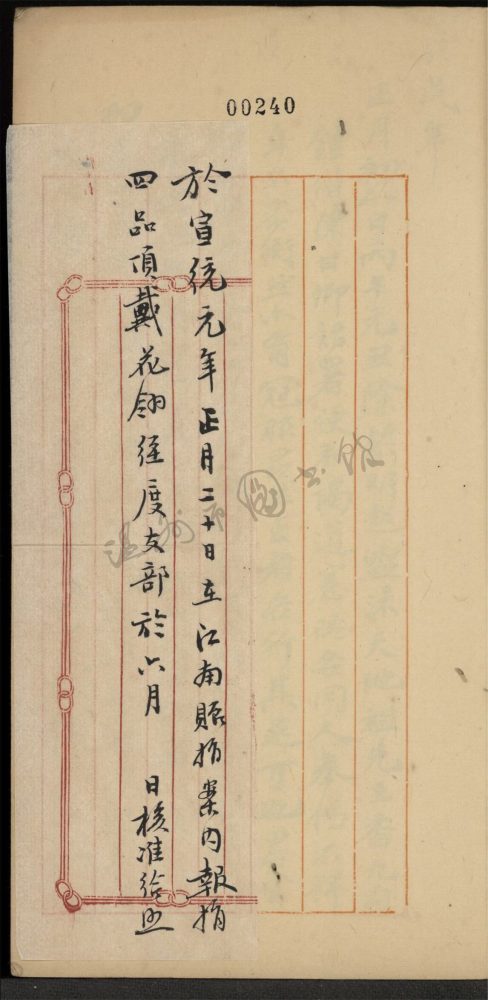 00240
於宣統元年正月二十日在江南賑捐案内報捐
四品頂戴花翎經度支部於六月 日核准給照
温州市圖书館